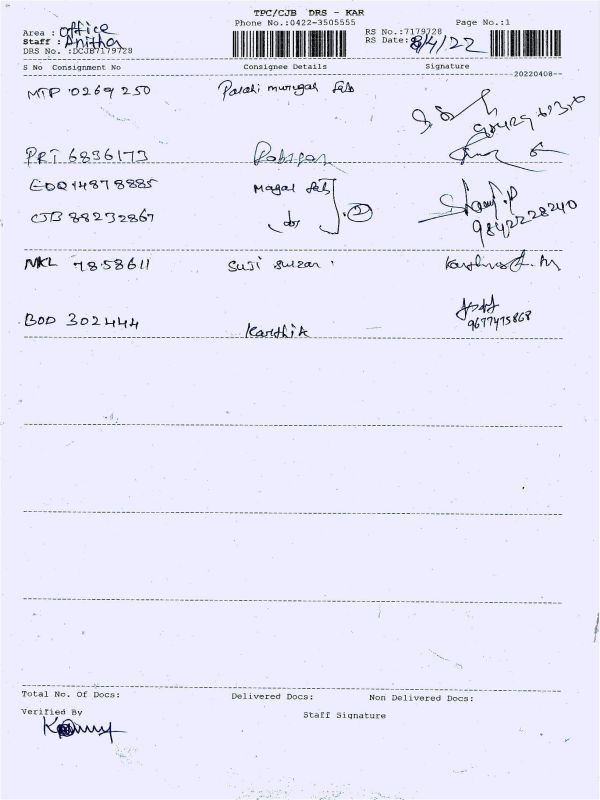 TPC/CJB DRS - KAR
Phone No.:0422-3505555 Page No.:1
Area : office
RS No.:7179728
Staff : Anitha
RS Date: 8/4/22
DRS No. :DCJB7179728
S No Consignment No Consignee Details Signature
20220408--
MTP 0269250 Palani murugan
PRT 6836173
EDQ 14878885 Magal
CJB 88232867 do 2
9842228240
MKL 7858611 Suji
BOD 302444 Karthik
9677475868
Total No. Of Docs: Delivered Docs: Non Delivered Docs:
Verified By
Staff Signature